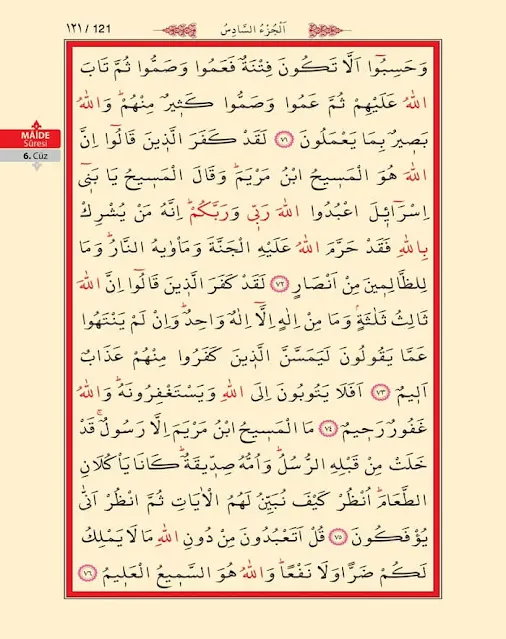 ١٢١ / 121
اَلْجُزْءُ السَّادِسُ
MÂİDE
Sûresi
6. Cüz
وَحَسِبُٓوا اَلَّا تَكُونَ فِتْنَةٌ فَعَمُوا وَصَمُّوا ثُمَّ تَابَ
اللّٰهُ عَلَيْهِمْ ثُمَّ عَمُوا وَصَمُّوا كَث۪يرٌ مِنْهُمْۜ وَاللّٰهُ
بَص۪يرٌ بِمَا يَعْمَلُونَ ﴿٧١﴾ لَقَدْ كَفَرَ الَّذ۪ينَ قَالُٓوا اِنَّ
اللّٰهَ هُوَ الْمَس۪يحُ ابْنُ مَرْيَمَۜ وَقَالَ الْمَس۪يحُ يَا بَن۪ٓي
اِسْرَٓائ۪لَ اعْبُدُوا اللّٰهَ رَبّ۪ي وَرَبَّكُمْۜ اِنَّهُ مَنْ يُشْرِكْ
بِاللّٰهِ فَقَدْ حَرَّمَ اللّٰهُ عَلَيْهِ الْجَنَّةَ وَمَأْوٰيهُ النَّارُۜ وَمَا
لِلظَّالِم۪ينَ مِنْ اَنْصَارٍ ﴿٧٢﴾ لَقَدْ كَفَرَ الَّذ۪ينَ قَالُٓوا اِنَّ اللّٰهَ
ثَالِثُ ثَلٰثَةٍۢ وَمَا مِنْ اِلٰهٍ اِلَّٓا اِلٰهٌ وَاحِدٌۜ وَاِنْ لَمْ يَنْتَهُوا
عَمَّا يَقُولُونَ لَيَمَسَّنَّ الَّذ۪ينَ كَفَرُوا مِنْهُمْ عَذَابٌ
اَل۪يمٌ ﴿٧٣﴾ اَفَلَا يَتُوبُونَ اِلَى اللّٰهِ وَيَسْتَغْفِرُونَهُۜ وَاللّٰهُ
غَفُورٌ رَح۪يمٌ ﴿٧٤﴾ مَا الْمَس۪يحُ ابْنُ مَرْيَمَ اِلَّا رَسُولٌۚ قَدْ
خَلَتْ مِنْ قَبْلِهِ الرُّسُلُۜ وَاُمُّهُ صِدّ۪يقَةٌۜ كَانَا يَأْكُلَانِ
الطَّعَامَۜ اُنْظُرْ كَيْفَ نُبَيِّنُ لَهُمُ الْاٰيَاتِ ثُمَّ انْظُرْ اَنّٰى
يُؤْفَكُونَ ﴿٧٥﴾ قُلْ اَتَعْبُدُونَ مِنْ دُونِ اللّٰهِ مَا لَا يَمْلِكُ
لَكُمْ ضَرًّا وَلَا نَفْعًاۜ وَاللّٰهُ هُوَ السَّم۪يعُ الْعَل۪يمُ ﴿٧٦﴾